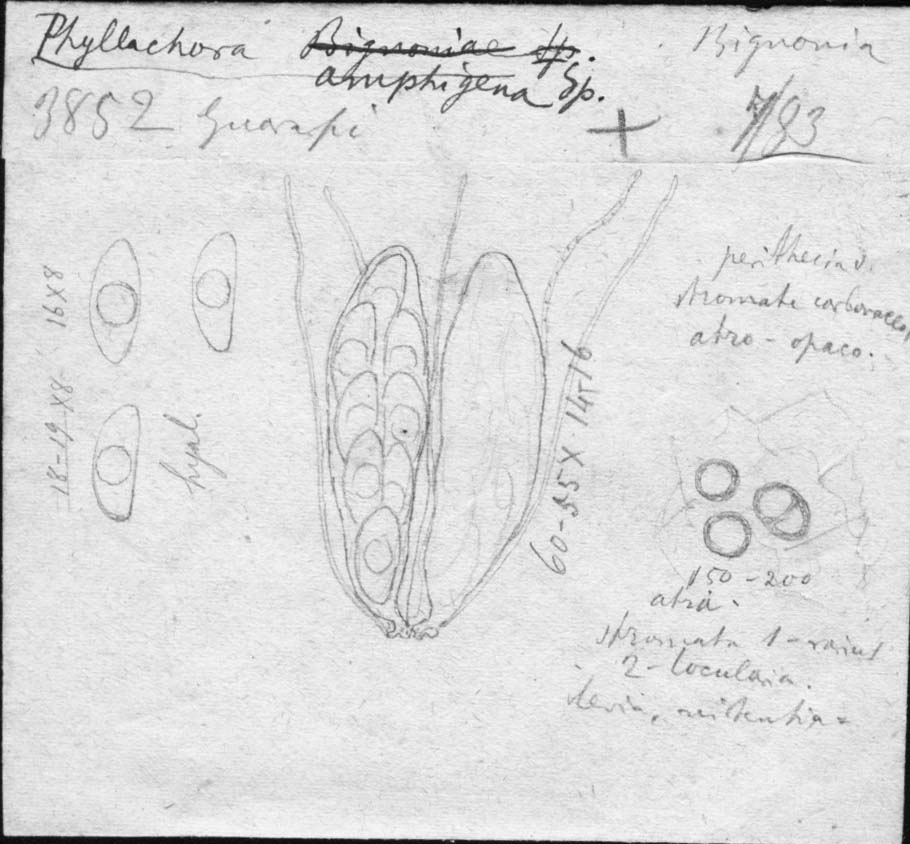 Phyllachora Bignoniae Sp. Bignonia
amphigena Sp.
3852 Guarapi + 7/83
16X8
18-19-X8
hyal.
60-55X 14-16
perithecia
stromate carbonaceo,
atro-opaco.
150-200
atra.
stromata 1-rarius
2-locularia.
levia, nitentia-